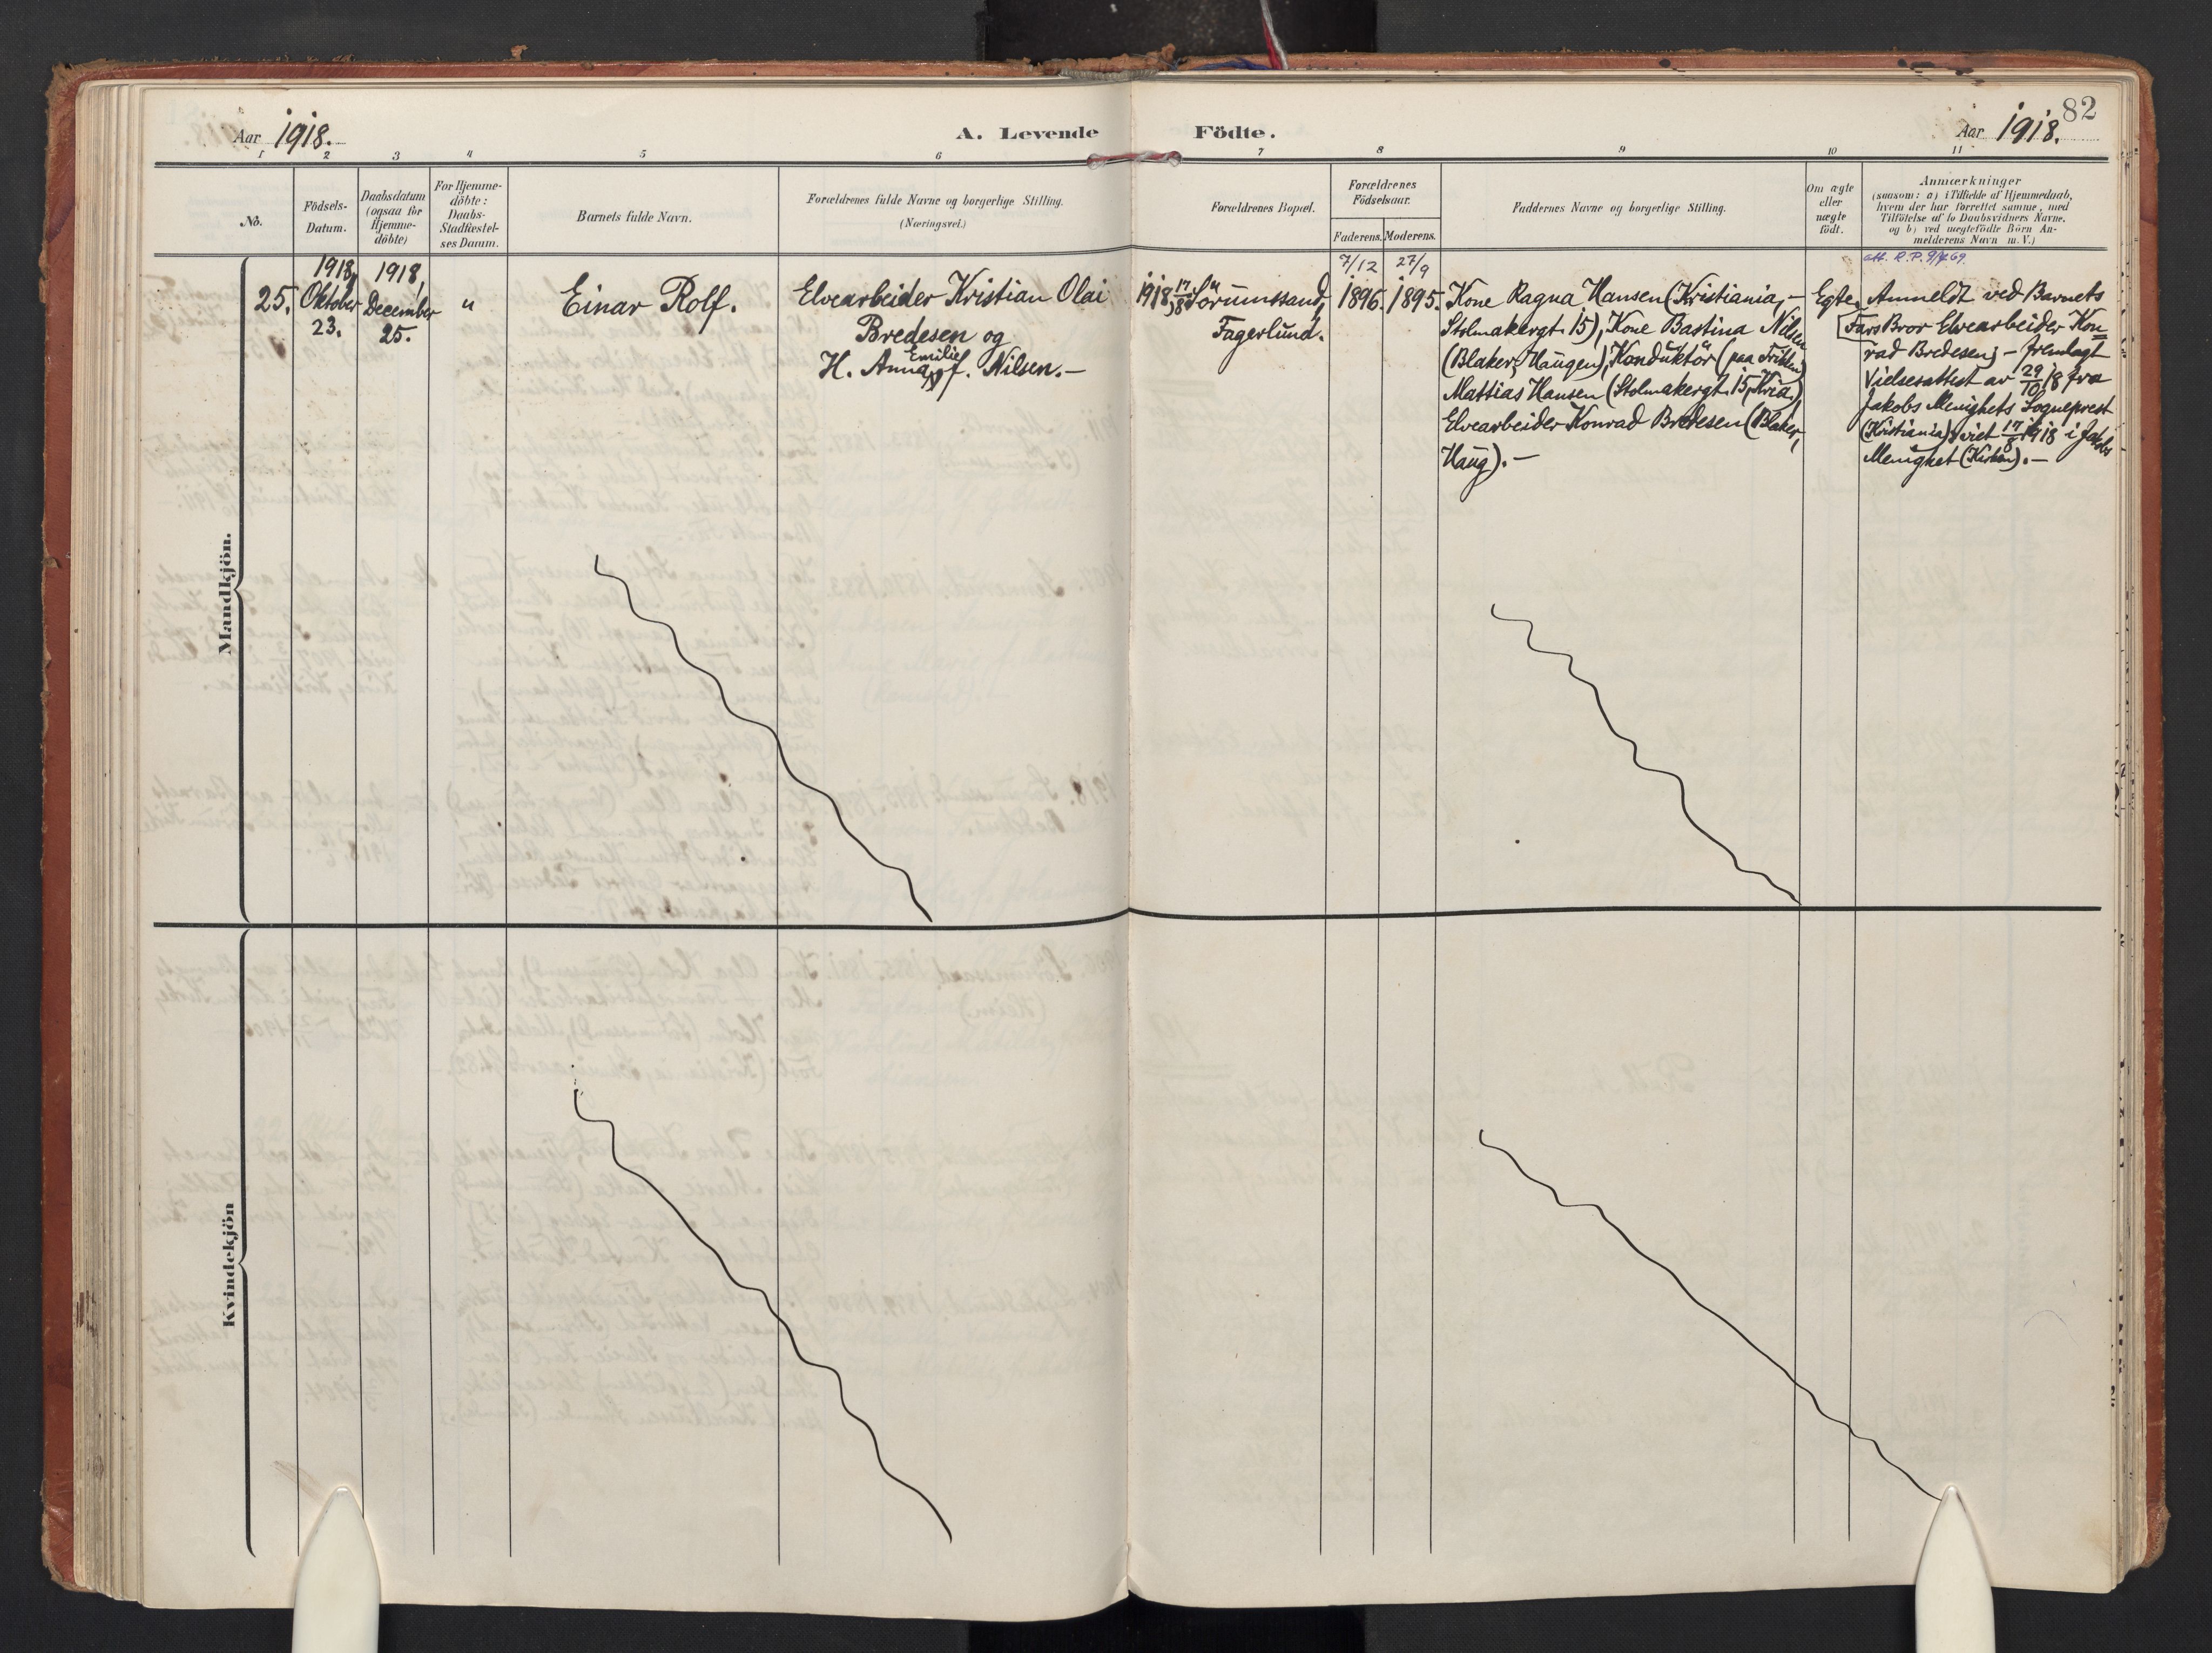 82
Aar 1918.
A. Levende Födte.
Aar 1918.
1 2 3 4 5 6 7 8 9 10 11
No.
Födsels-
Datum.
Daabsdatum
(ogsaa for
Hjemme-
döbte)
For Hjemme-
döbte:
Daabs-
Stadfæstel-
ses Datum.
Barnets fulde Navn.
Forældrenes fulde Navne og borgerlige Stilling.
(Næringsvei.)
Forældrenes Bopæl.
Forældrenes
Födselsaar.
Faderens. Moderens.
Faddernes Navne og borgerlige Stilling.
Om ægte
eller
uægte
födt.
Anmærkninger
(saasom: a) i Tilfælde af Hjemmedaab,
hvem der har forrettet samme, med
Tilföielse af to Daabsvidners Navne,
og b) ved uægtefödte Börn An-
melderens Navn m. V.)
Mandkjön.
25.
1918,
Oktober
23.
1918,
December
25.
"
Einar Rolf.
Elvearbeider Kristian Olai
Bredesen og
H. Anna Emilie f. Nilsen.-
1918, 17/8
Sörumssand,
Fagerlund.
7/12
1896.
27/9
1895.
Kone Ragna Hansen (Kristiania, -
Stolmakergt. 15), Kone Bastina Nilsen
(Blaker, Haugen), Konduktör (paa Trikken)
Mattias Hansen (Stolmakergt. 15, Kria.),
Elvearbeider Konrad Bredesen (Blaker,
Haug).-
Egte.
att. R.P. 9/4 69.
Anmeldt ved Barnets
Fars Bror Elvearbeider Kon=
rad Bredesen; - fremlagt
Vielsesattest av 29/10 18 fra
Jakobs Menighets Sogneprest
(Kristiania), viet 17/8 1918 i Jakobs
Menighet (Kirken).-
Kvindekjön